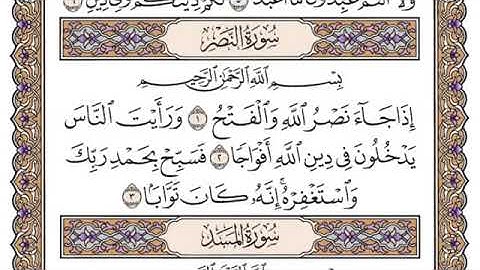 وَلَا أَنتُمْ عَٰبِدُونَ مَا أَعْبُدُ ۝٥ لَكُمْ دِينُكُمْ وَلِيَ دِينِ ۝٦
سُورَةُ النَّصْرِ
بِسْمِ ٱللَّهِ ٱلرَّحْمَٰنِ ٱلرَّحِيمِ
إِذَا جَآءَ نَصْرُ ٱللَّهِ وَٱلْفَتْحُ ۝١ وَرَأَيْتَ ٱلنَّاسَ
يَدْخُلُونَ فِى دِينِ ٱللَّهِ أَفْوَاجًا ۝٢ فَسَبِّحْ بِحَمْدِ رَبِّكَ
وَٱسْتَغْفِرْهُ ۚ إِنَّهُۥ كَانَ تَوَّابًۢا ۝٣
سُورَةُ المَسَدِ